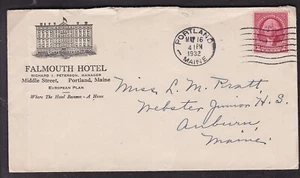 FALMOUTH HOTEL
RICHARD I. PETERSON, MANAGER
Middle Street, Portland, Maine
EUROPEAN PLAN
Where The Hotel Becomes - A Home
PORTLAND
MAY 16
4 PM
1932
MAINE
Miss L. M. Pratt,
Webster Junior H. S.
Auburn,
Maine.